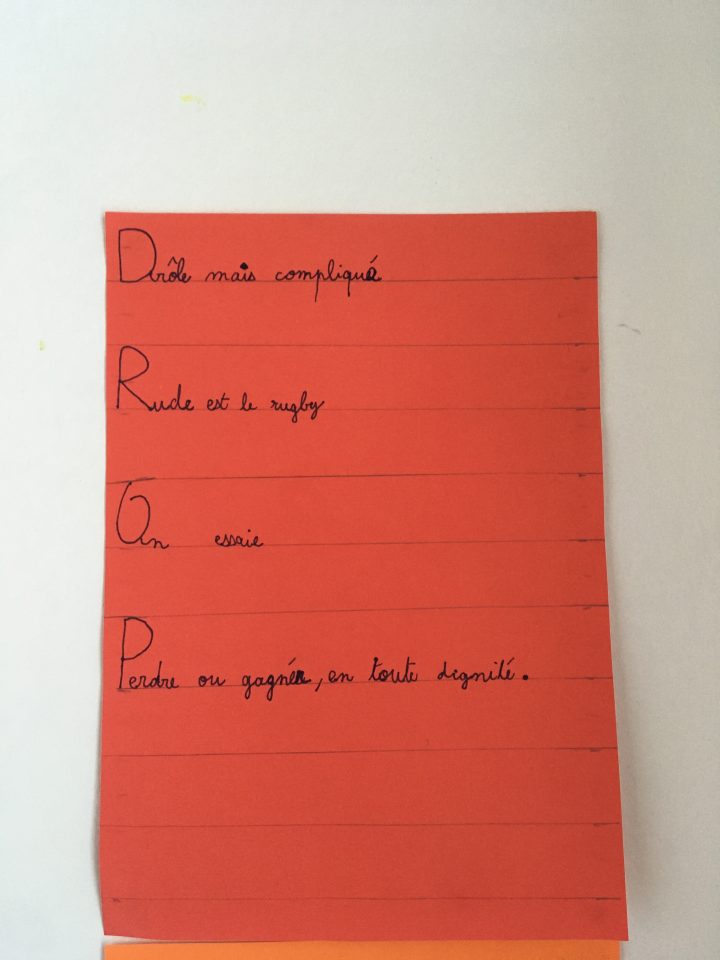 Drôle mais compliqué
Rude est le rugby
On essaie
Perdre ou gagner, en toute dignité.